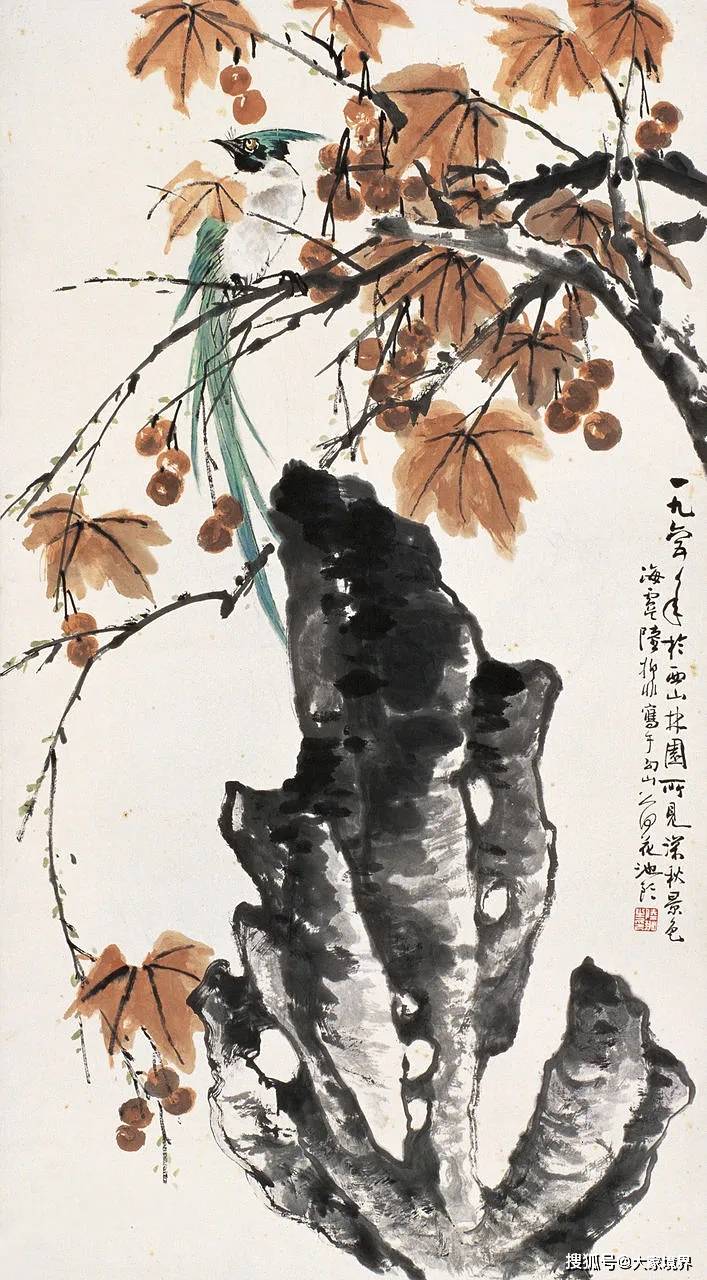 一九六年於西山林園所見深秋景色
海虞陸抑非寫于勾山荷花池
搜狐号@大家境界